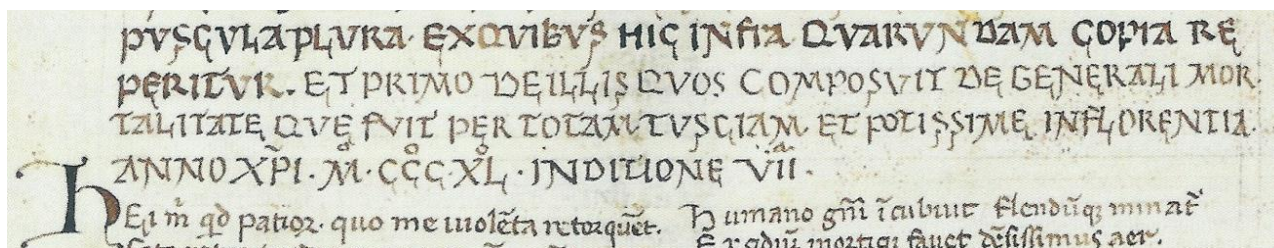 PVSCVLA PLVRA · EXQVIBVS HIC INFRA QVARVNDAM COPIA RE
PERITVR. ET PRIMO DE ILLIS QVOS COMPOSVIT DE GENERALI MOR
TALITATE QVĘ FVIT PER TOTAM TVSCIAM. ET POTISSIME INFLORENTIA.
ANNO XP̄I · M̊ · CCC̊ · XL̊ · INDITIONE VII̊ ·
HEi m̄ qđ patior · quo me uiolēta retorquēt.
Humano gn̄i īcubiut flendūq; minat᷑
Ergdiū mortiqi fauet dēsissimus aer.